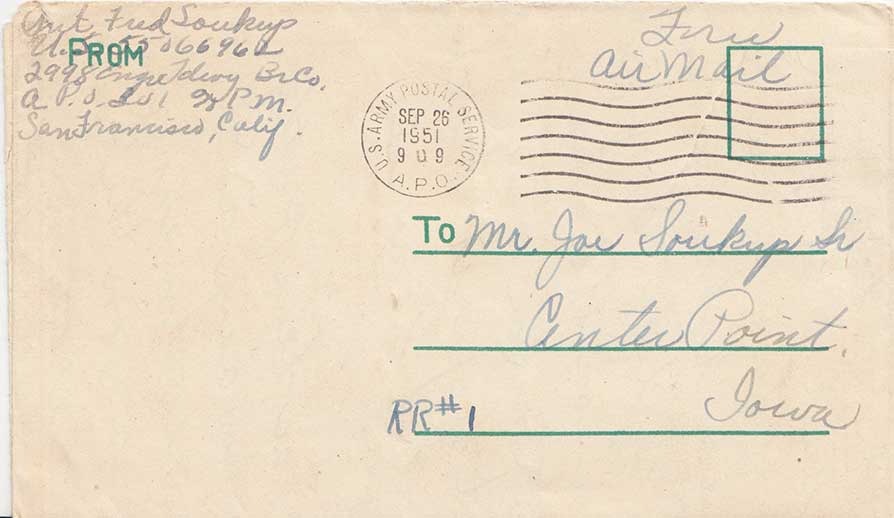 Pvt. Fred Soukup
U.S. 55066962
FROM
2998 Engr Tdwy Br Co.
A.P.O. 301 % P.M.
San Francisco, Calif.
Free
Air Mail
U.S. ARMY POSTAL SERVICE
SEP 26
1951
909
A.P.O.
To Mr. Joe Soukup Sr
Center Point,
Iowa
RR#1